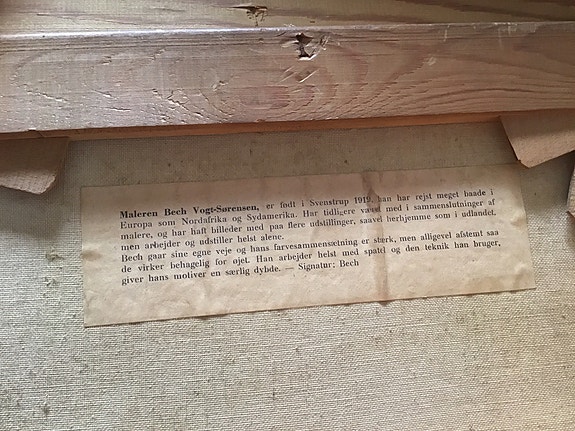 Maleren Bech Vogt-Sørensen, er født i Svenstrup 1919, han har rejst meget baade i
Europa som Nordafrika og Sydamerika. Har tidligere været med i sammenslutninger af
malere, og har haft billeder med paa flere udstillinger, saavel herhjemme som i udlandet.
men arbejder og udstiller helst alene.
Bech gaar sine egne veje og hans farvesammensætning er stærk, men alligevel afstemt saa
de virker behagelig for øjet. Han arbejder helst med spatel og den teknik han bruger,
giver hans motiver en særlig dybde. — Signatur: Bech